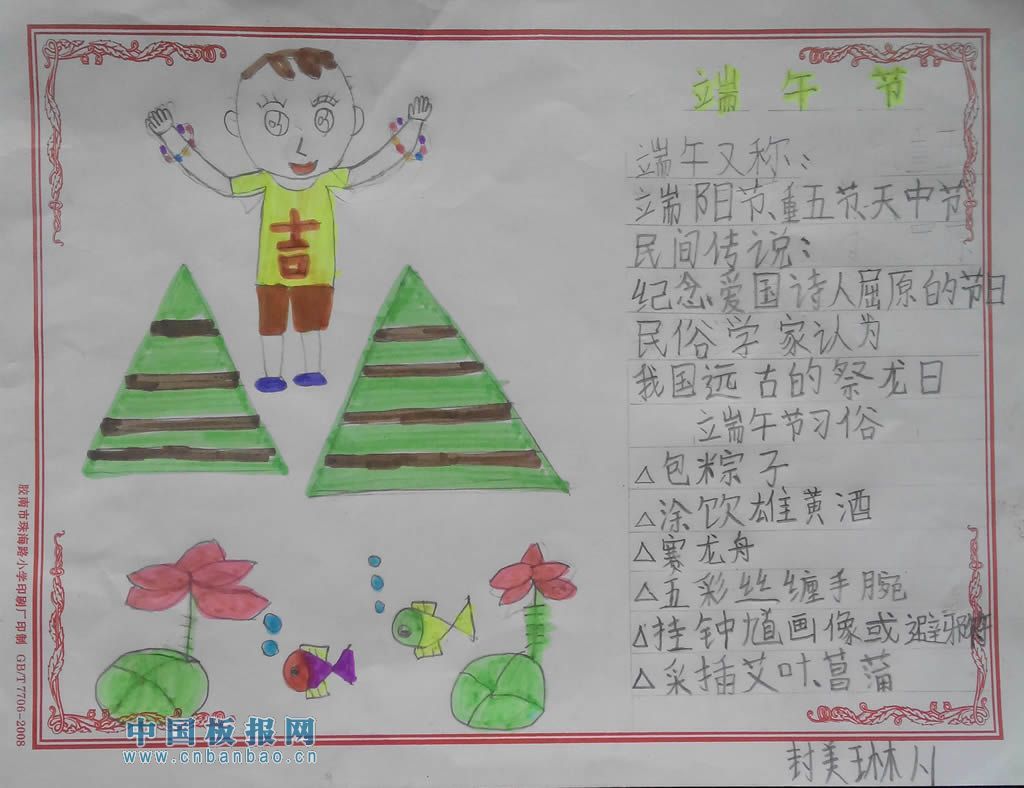 端午节
端午又称：
端阳节、重五节、天中节
民间传说：
纪念爱国诗人屈原的节日
民俗学家认为
我国远古的祭龙日
端午节习俗
△包粽子
△涂饮雄黄酒
△赛龙舟
△五彩丝缠手腕
△挂钟馗画像或避邪符
△采插艾叶、菖蒲
吉
胶南市珠海路小学印刷厂印制 GB/T 7706-2008
中国板报网
www.cnbanbao.cn
封美琳